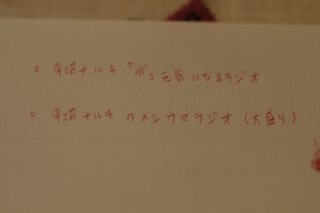 ○ 平沼ナルキ「が」元気になるラジオ
○ 平沼ナルキのメシウマラジオ(大盛り)